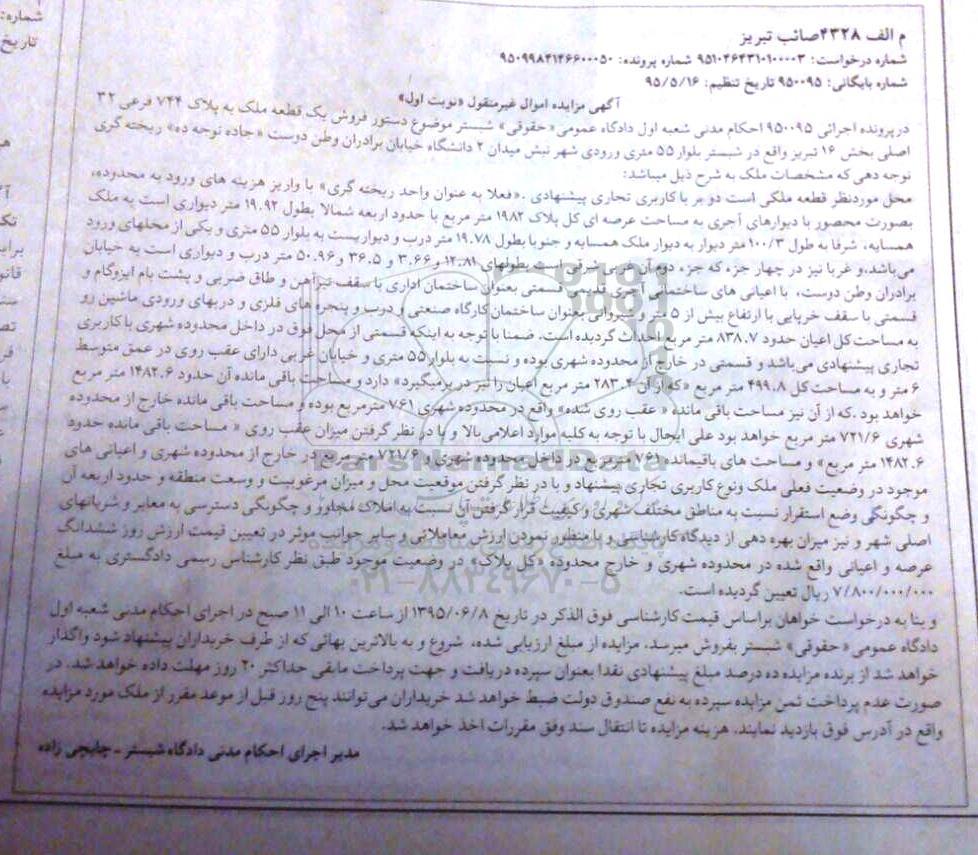 شماره:
تاریخ
م الف ۴۳۲۸صائب تبریز
شماره درخواست: ۹۵۱۰۴۶۴۳۱۰۱۰۰۰۰۳ شماره پرونده: ۹۵۰۹۹۸۴۱۴۶۶۰۰۰۵۰
شماره بایگانی: ۹۵۰۰۹۵ تاریخ تنظیم: ۹۵/۵/۱۶
آگهی مزایده اموال غیرمنقول «نوبت اول»
درپرونده اجرائی ۹۵۰۰۹۵ احکام مدنی شعبه اول دادگاه عمومی «حقوقی» شبستر موضوع دستور فروش یک قطعه ملک به پلاک ۷۴۴ فرعی ۳۲
اصلی بخش ۱۶ تبریز واقع در شبستر بلوار ۵۵ متری ورودی شهر نبش میدان ۲ دانشگاه خیابان برادران وطن دوست «جاده نوجه ده» ریخته گری
نوجه دهی که مشخصات ملک به شرح ذیل میباشد:
محل موردنظر قطعه ملکی است دو بر با کاربری تجاری پیشنهادی .«فعلا به عنوان واحد ریخته گری» با واریز هزینه های ورود به محدوده،
بصورت محصور با دیوارهای آجری به مساحت عرصه ای کل پلاک ۱۹۸۲ متر مربع با حدود اربعه شمالا بطول ۱۹.۹۲ متر دیواری است به ملک
همسایه، شرقا به طول ۱۰۰/۳ متر دیوار به دیوار ملک همسایه و جنوبا بطول ۱۹.۷۸ متر درب و دیواریست به بلوار ۵۵ متری و یکی از محلهای ورود
می‌باشد.و غربا نیز در چهار جزء که جزء دوم آن شرقی بطولهای ۱۲.۸۱ و ۳.۶۶ و ۳۶.۵ و ۵۰.۹۶ متر درب و دیواری است به خیابان
برادران وطن دوست، با اعیانی های ساختمانی آجری قسمتی بعنوان ساختمان اداری با سقف تیرآهن و طاق ضربی و پشت بام ایزوگام و
قسمتی با سقف خرپایی با ارتفاع بیش از ۵ متر و شیروانی بعنوان ساختمان کارگاه صنعتی و درب و پنجره های فلزی و دربهای ورودی ماشین رو
به مساحت کل اعیان حدود ۸۳۸.۷ متر مربع احداث گردیده است. ضمنا با توجه به اینکه قسمتی از محل فوق در داخل محدوده شهری با کاربری
تجاری پیشنهادی می‌باشد و قسمتی در خارج از محدوده شهری بوده و نسبت به بلوار ۵۵ متری و خیابان غربی دارای عقب روی در عمق متوسط
۶ متر و به مساحت کل ۴۹۹.۸ متر مربع «که از آن ۲۸۳.۴ متر مربع اعیان را نیز در برمیگیرد» دارد و مساحت باقی مانده آن حدود ۱۴۸۲.۶ متر مربع
خواهد بود .که از آن نیز مساحت باقی مانده « عقب روی شده» واقع در محدوده شهری ۷۶۱ مترمربع بوده و مساحت باقی مانده خارج از محدوده
شهری ۷۲۱/۶ متر مربع خواهد بود علی ایحال با توجه به کلیه موارد اعلامی بالا و با در نظر گرفتن میزان عقب روی « مساحت باقی مانده حدود
۱۴۸۲.۶ متر مربع» و مساحت های باقیمانده ۷۶۱ مترمربع در داخل محدوده شهری و ۷۲۱/۶ متر مربع در خارج از محدوده شهری و اعیانی های
موجود در وضعیت فعلی ملک ونوع کاربری تجاری پیشنهاد و با در نظر گرفتن موقعیت محل و میزان مرغوبیت و وسعت منطقه و حدود اربعه آن
و چگونگی وضع استقرار نسبت به مناطق مختلف شهری و کیفیت قرار گرفتن آن نسبت به املاک مجاور و چگونگی دسترسی به معابر و شریانهای
اصلی شهر و نیز میزان بهره دهی از دیدگاه کارشناسی و با منظور نمودن ارزش معاملاتی و سایر جوانب موثر در تعیین قیمت ارزش روز ششدانگ
عرصه و اعیانی واقع شده در محدوده شهری و خارج محدوده «کل پلاک» در وضعیت موجود طبق نظر کارشناس رسمی دادگستری به مبلغ
۷/۸۰۰/۰۰۰/۰۰۰ ریال تعیین گردیده است.
و بنا به درخواست خواهان براساس قیمت کارشناسی فوق الذکر در تاریخ ۱۳۹۵/۰۶/۸ از ساعت ۱۰ الی ۱۱ صبح در اجرای احکام مدنی شعبه اول
دادگاه عمومی « حقوقی» شبستر بفروش میرسد. مزایده از مبلغ ارزیابی شده، شروع و به بالاترین بهائی که از طرف خریداران پیشنهاد شود واگذار
خواهد شد از برنده مزایده ده درصد مبلغ پیشنهادی نقدا بعنوان سپرده دریافت و جهت پرداخت مابقی حداکثر ۲۰ روز مهلت داده خواهد شد. در
صورت عدم پرداخت ثمن مزایده سپرده به نفع صندوق دولت ضبط خواهد شد خریداران می‌توانند پنج روز قبل از موعد مقرر از ملک مورد مزایده
واقع در آدرس فوق بازدید نمایند. هزینه مزایده تا انتقال سند وفق مقررات اخذ خواهد شد.
مدیر اجرای احکام مدنی دادگاه شبستر ـ چایچی زاده
ParsNamadData
۰۲۱-۸۸۳۴۹۶۷۰-۵